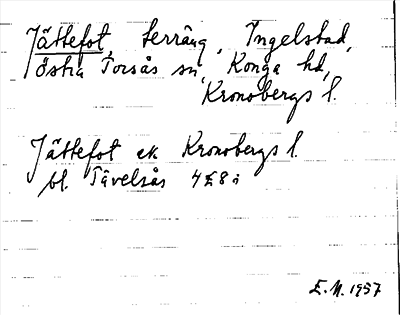 Jättefot, terräng, Ingelstad,
Östra Torsås sn, Konga hd,
Kronobergs l.
Jättefot ek Kronobergs l.
bl. Tävelsås 4E8i
E.N. 1957